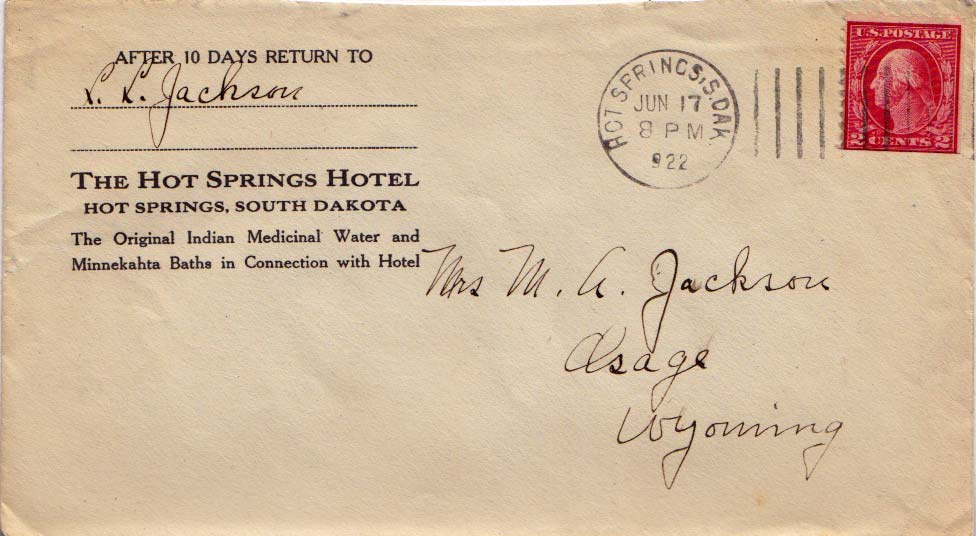 AFTER 10 DAYS RETURN TO
L. L. Jackson
THE HOT SPRINGS HOTEL
HOT SPRINGS, SOUTH DAKOTA
The Original Indian Medicinal Water and
Minnekahta Baths in Connection with Hotel
HOT SPRINGS, S. DAK.
JUN 17
8 PM
922
U.S. POSTAGE
2 CENTS 2
Mrs M. A. Jackson
Osage
Wyoming